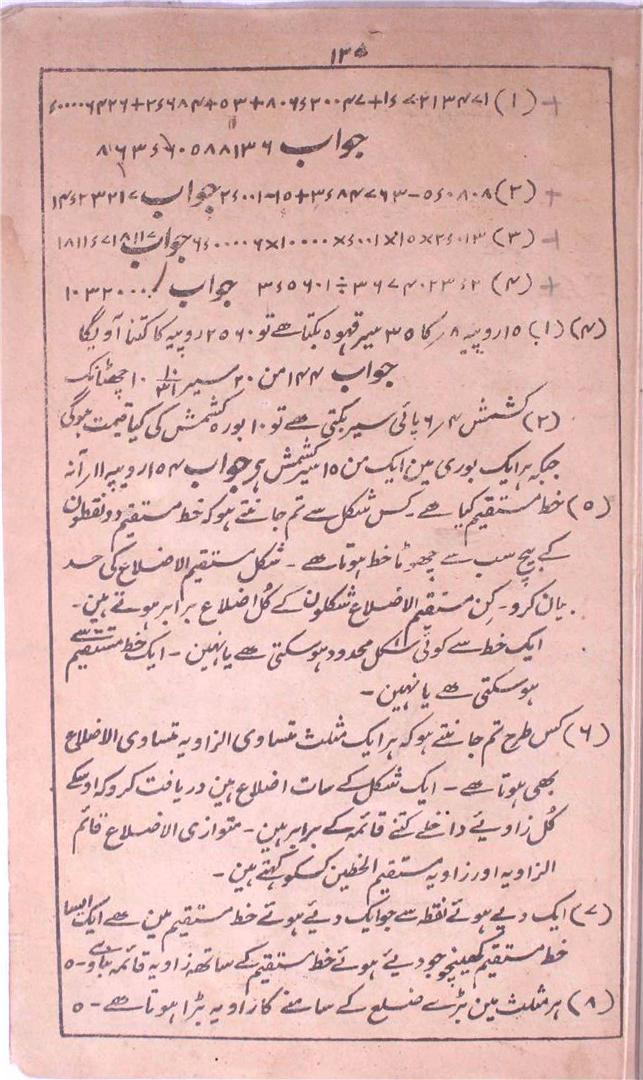 ۱۳۵
(۱) ۱۷۲۱۳۴۷۱+
جواب
(۲) جواب
(۳) ۲٤۰۱۳×۱۵×۱۰۰۰۰×۶ جواب
(۴) ÷ جواب
(۴) (۱) ۱۵ روپیہ ۸ر کا ۳۵ سیر قہوہ بکتا ہے تو ۲۵۶۰ روپیہ کا کتنا آویگا
جواب ۱۴۴ من ۲۰ سیر ۱۰ ۱۰/۳۱ چھٹانک
(۲) کشمش ۴ر ۶ پائی سیر بکتی ہے تو ۱۰ بورہ کشمش کی کیا قیمت ہوگی
جبکہ ہر ایک بوری مین ایک من ۱۵ سیر کشمش ہر جواب ۱۵۴ روپیہ ۱۱ر آنہ
(۵) خط مستقیم کیا ہے ۔ کس شکل سے تم جانتے ہو کہ خط مستقیم دو نقطون
کے بیچ سب سے چھوٹا خط ہوتا ہے ۔ شکل مستقیم الاضلاع کی حد
بیان کرو ۔ کن مستقیم الاضلاع شکلون کے کُل اضلاع برابر ہوتے ہین ۔
ایک خط سے کوئی شکل محدود ہو سکتی ہے یا نہین ۔ ایک خط مستقیم سے
ہو سکتی ہے یا نہین ۔
(۶) کس طرح تم جانتے ہو کہ ہر ایک مثلث متساوی الزاویہ متساوی الاضلاع
بھی ہوتا ہے ۔ ایک شکل کے سات اضلاع ہین دریافت کرو کہ اوسکے
کُل زاویے داخلے کتنے قائمہ کے برابر ہین ۔ متوازی الاضلاع قائم
الزاویہ اور زاویہ مستقیم الخطین کسکو کہتے ہین ۔
(۷) ایک دیے ہوئے نقطہ سے جو ایک دیے ہوئے خط مستقیم مین ہے ایک ایسا
خط مستقیم کھینچو جو دیے ہوئے خط مستقیم کے ساتھ زاویہ قائمہ بناوے ۔ ۵
(۸) ہر مثلث مین بڑے ضلع کے سامنے کا زاویہ بڑا ہوتا ہے ۔ ۵